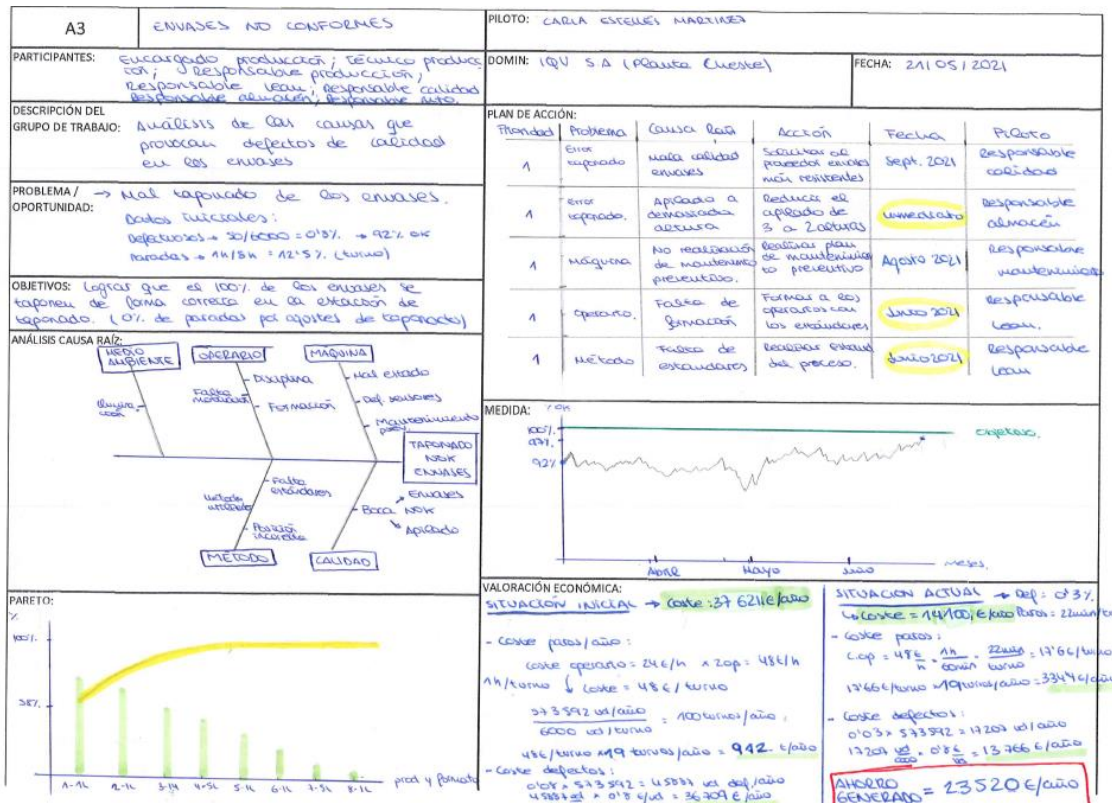 A3
ENVASES NO CONFORMES
PILOTO: CARLA ESTELLÉS MARTINEZ
PARTICIPANTES: Encargado producción; técnico produc
ción; Responsable producción;
Responsable Lean; Responsable calidad
Responsable almacén; Responsable mto.
DOMIN: IQV S.A (Planta Cheste)
FECHA: 21/05/2021
DESCRIPCIÓN DEL
GRUPO DE TRABAJO: Análisis de las causas que
provocan defectos de calidad
en los envases
PROBLEMA / → Mal taponado de los envases.
OPORTUNIDAD:
Datos iniciales:
Defectuosos → 50/6000 = 0'8% → 92% OK
Paradas → 1h/8h = 12'5% (turno)
OBJETIVOS: Lograr que el 100% de los envases se
taponen de forma correcta en la estación de
taponado. (0% de paradas por ajustes de taponado)
ANÁLISIS CAUSA RAÍZ:
MEDIO
AMBIENTE
OPERARIO
MÁQUINA
Disciplina
Falta
motivación
Formación
Mal estado
Def. sensores
Mantenimiento
prev.
Ilumina-
ción
TAPONADO
NOK
ENVASES
Falta
estándares
Método
utilizado
Posición
incorrecta
Envases
Boca NOK
Apilado
MÉTODO
CALIDAD
PARETO:
%
100%
38%
1-1L
2-1L
4-5L
5-1L
6-1L
7-5L
8-1L
prod y formato
PLAN DE ACCIÓN:
Prioridad Problema Causa Raíz Acción Fecha Piloto
1 Error taponado Mala calidad envases Solicitar al proveedor envases más resistentes Sept. 2021 Responsable calidad
1 Error taponado. Apilado a demasiada altura Reducir el apilado de 3 a 2 alturas Inmediato Responsable almacén
1 Máquina No realización de mantenimto preventivo. Realizar plan de mantenimien to preventivo Agosto 2021 Responsable mantenimiento
1 Operario. Falta de formación Formar a los operarios con los estándares Junio 2021 Responsable Lean.
1 Método Falta de estándares Realizar estánd del proceso. Junio 2021 Responsable Lean
MEDIDA:
% OK
100%
97%
92%
objetivo.
Abril
Mayo
Junio
meses.
VALORACIÓN ECONÓMICA:
SITUACIÓN INICIAL → Coste: 37 621€/año
- Coste paros/año:
Coste operario = 24€/h x 2op = 48€/h
1h/turno ↓ Coste = 48€/turno
573592 ud/año
6000 ud/turno
= 100 turnos/año.
48€/turno x 19 turnos/año = 912 €/año
- Coste defectos:
0'08 x 573592 = 45887 ud def./año
45887 ud x 0'8 €/ud = 36709 €/año
SITUACIÓN ACTUAL → Def: 0'3%.
↳ Coste = 14100, €/año Paros: 22min/
- Coste paros:
C.op = 48€/h · 1h/60min · 22min/turno = 17'6€/turno
17'6€/turno x 19 turnos/año = 334'4€/año
- Coste defectos:
0'03 x 573592 = 17207 ud/año
17207 ud · 0'8€ = 13 766 €/año
AHORRO
GENERADO = 23520 €/año